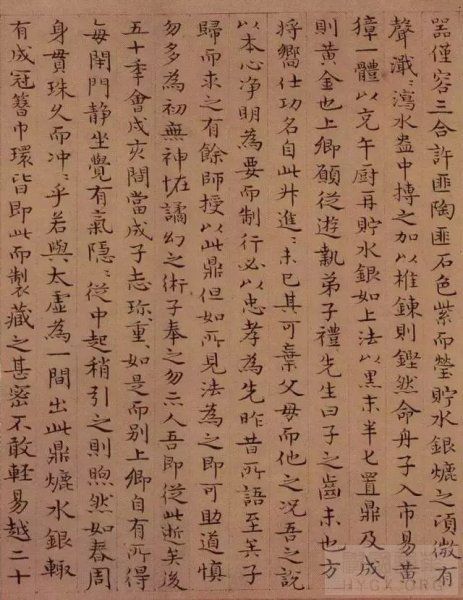 器僅容三合許匪陶匪石色紫而瑩貯水銀爊之頃微有
聲〻瀉水盎中摶之加以椎鍊則鏗然命舟子入市易黃
獐一體以充午厨再貯水銀如上法以黑末半匕置鼎及成
則黃金也上卿願從遊執弟子禮先生曰子之齒未也方
将嚮仕功名自此升進〻未已其可棄父母而他之況吾之說
以本心净明為要而制行必以忠孝為先昨昔所語至矣子
歸而求之有餘師授以此鼎但如所見法為之即可助道慎
勿多為初無神怪譎幻之術子奉之勿示人吾即從此逝矣後
五十季會戌亥間當成子志珎〻重〻如是而別上卿自有所得
每閉門静坐覺有氣隱〻從中起稍引之則煦然如春周
身貫珠久而冲〻乎若與太虛為一間出此鼎爊水銀輙
有成冠簪巾環皆即此而製藏之甚密不敢輕易越二十
HYGX.ORG